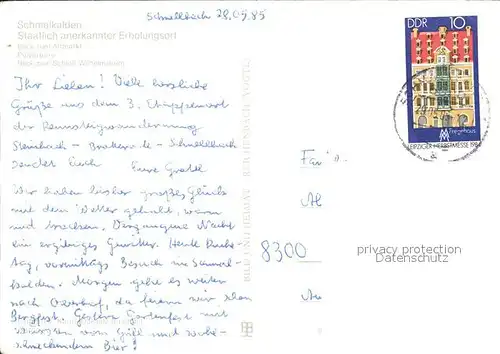 Schnellbach 28.05.85
Schmalkalden
Staatlich anerkannter Erholungsort
Blick zum Altmarkt
Blick zum Schloß Wilhelmsburg
Ihr Lieben! Viele herzliche
Grüße aus dem 3. Etappenort
der Rennsteigwanderung
Steinbach - Brotterode - Schnellbach
sendet Euch Eure Gretel
Wir haben bisher großes Glück
mit dem Wetter gehabt, warm
und trocken. Vergangene Nacht
ein ergiebiges Gewitter. Heute Ruhe-
tag, vormittags Besuch in Schmal-
kalden. Morgen gehe es weiter
nach Oberhof, da feiern wir schon
Bergfest. Gestern Gartenfest mit
vom Grill und wohl-
schmeckendem Bier!
BILD UND HEIMAT REICHENBACH (VOGTL)
DDR 10
Zeppelinhaus
LEIPZIGER HERBSTMESSE 198
Fam
8300
privacy protection
Datenschutz